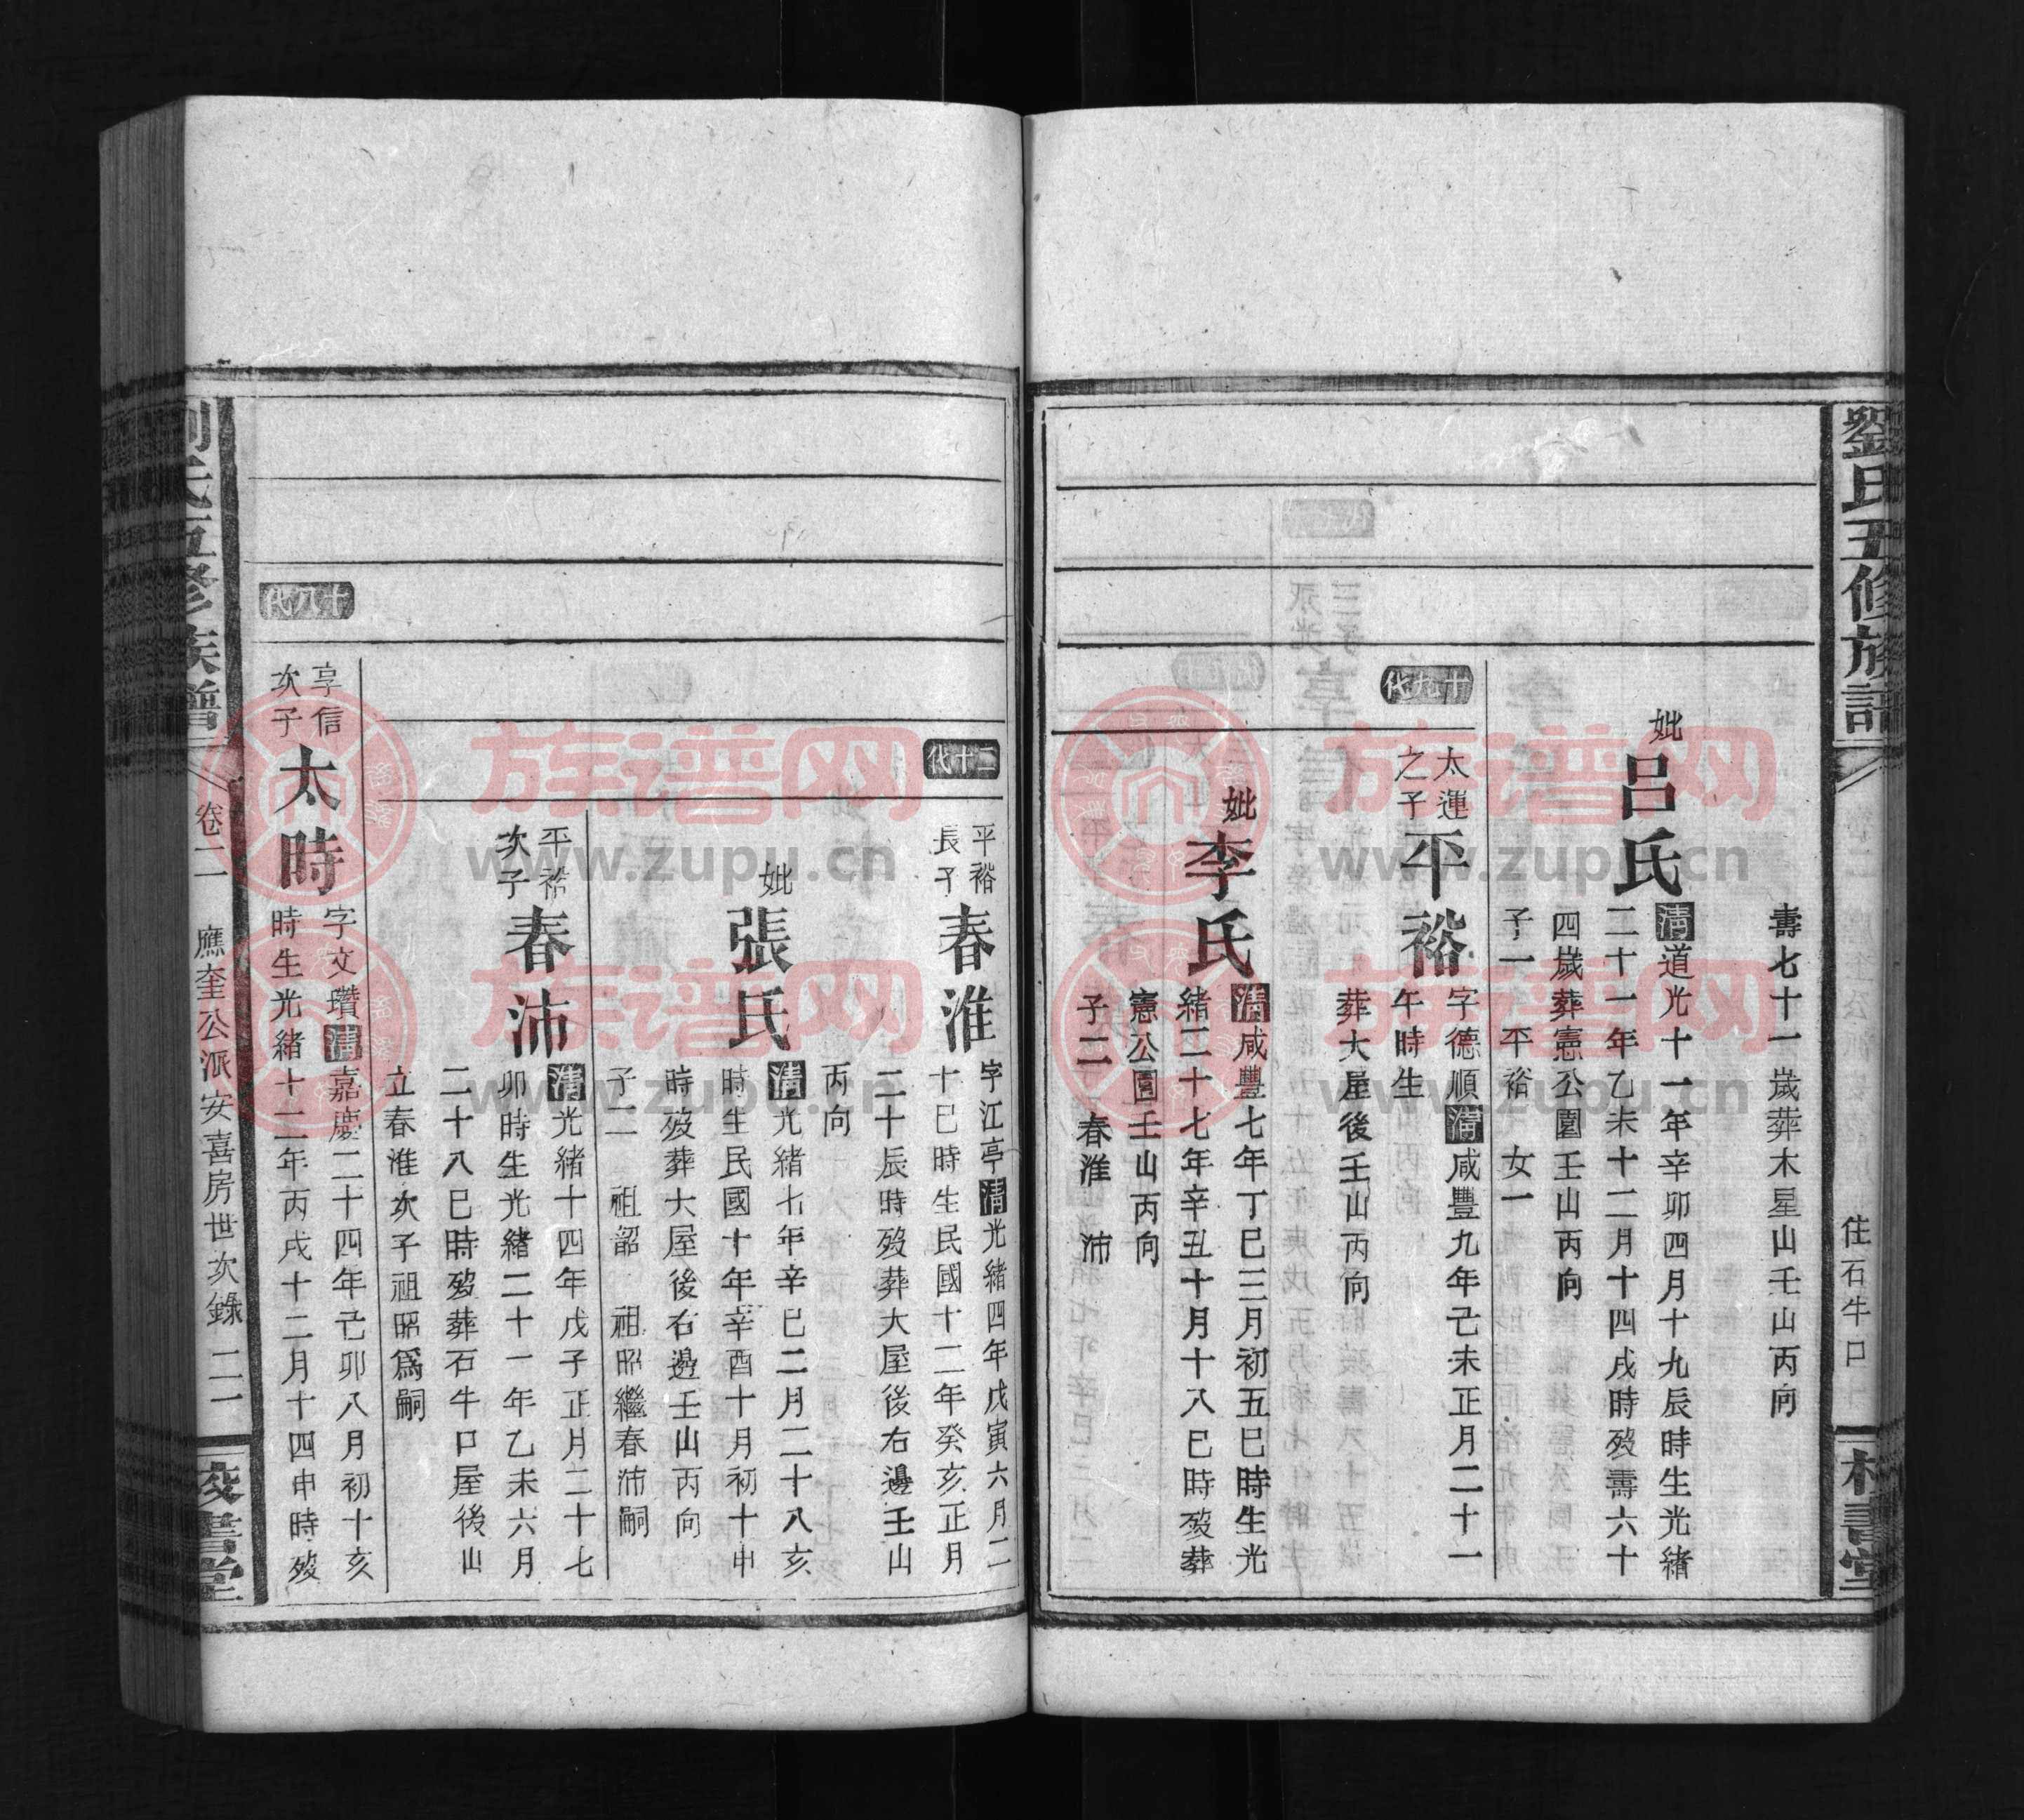 劉氏五修族譜
住石牛口
校書堂
壽七十一歲葬木星山壬山丙向
妣
呂氏
清道光十一年辛卯四月十九辰時生光緒
二十一年乙未十二月十四戌時歿壽六十
四歲葬憲公園壬山丙向
子一 平裕 女一
十九代
太運
之子
平裕
字德順清咸豐九年己未正月二十一
午時生
葬大屋後壬山丙向
妣
李氏
清咸豐七年丁巳三月初五巳時生光
緒二十七年辛丑十月十八巳時歿葬
憲公園壬山丙向
子二 春淮 沛
二十代
平裕
長子
春淮
字江亭清光緒四年戊寅六月二
十巳時生民國十二年癸亥正月
二十辰時歿葬大屋後右邊壬山
丙向
妣
張氏
清光緒七年辛巳二月二十八亥
時生民國十年辛酉十月初十申
時歿葬大屋後右邊壬山丙向
子二 祖韶 祖昭繼春沛嗣
平裕
次子
春沛
清光緒十四年戊子正月二十七
卯時生光緒二十一年乙未六月
二十八巳時歿葬石牛口屋後山
立春淮次子祖昭爲嗣
十八代
享信
次子
太時
字文瓚清嘉慶二十四年己卯八月初十亥
時生光緒十二年丙戌十二月十四申時歿
劉氏五修族譜
卷二 應奎公派安喜房世次錄 二一
校書堂
族谱网
www.zupu.cn
族谱网
www.zupu.cn
族谱网
www.zupu.cn
族谱网
www.zupu.cn